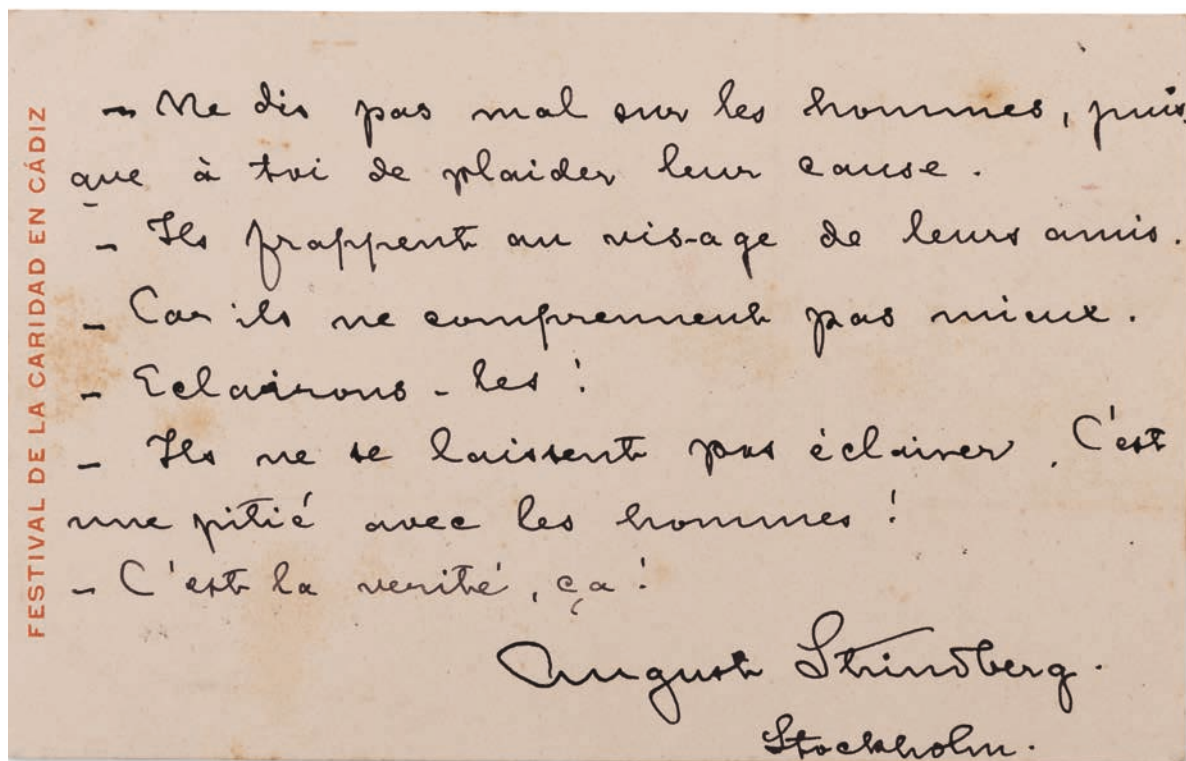 FESTIVAL DE LA CARIDAD EN CÁDIZ
- Ne dis pas mal sur les hommes, puis
que à toi de plaider leur cause.
- Ils frappent au vis-age de leurs amis.
- Car ils ne comprennent pas mieux.
- Eclairons-les!
- Ils ne se laissent pas éclairer. C'est
une pitié avec les hommes!
- C'est la verité, ça!
August Strindberg.
Stockholm.